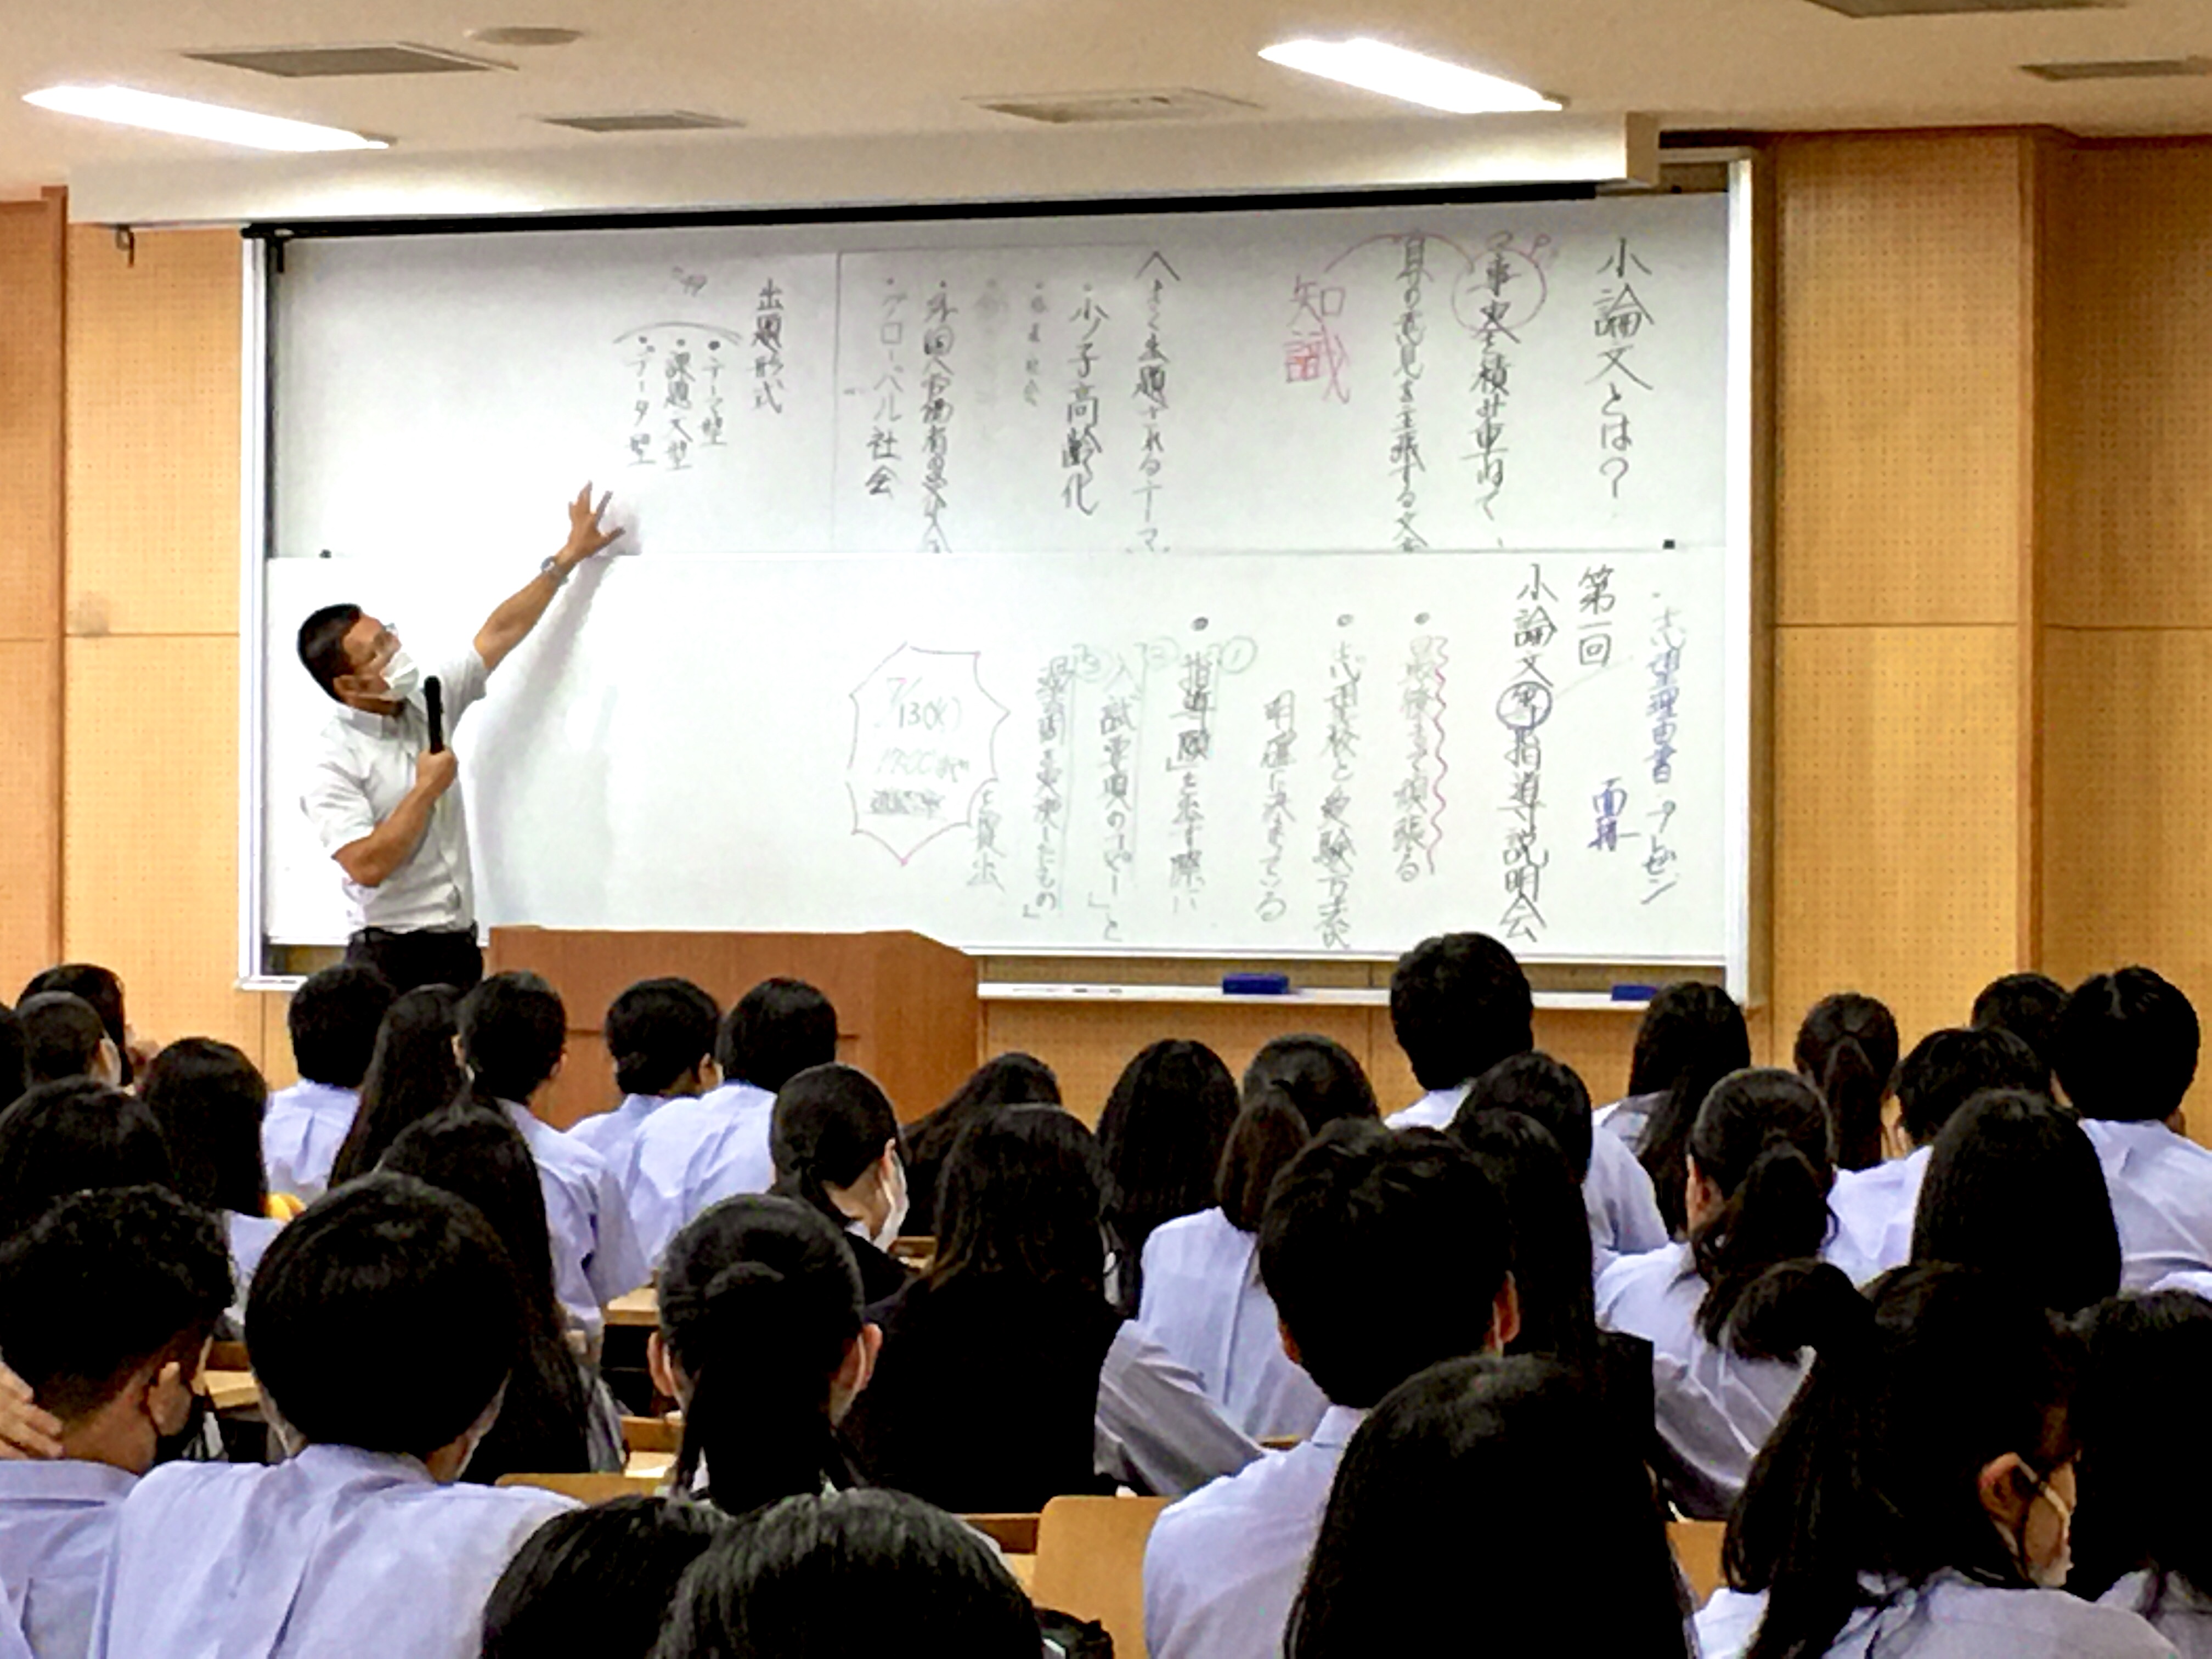 小論文とは?
事実を積み重ねて、
自分の意見を主張する文章
知識
よく出題されるテーマ
・少子高齢化
・外国人労働者受け入れ
・グローバル社会
出題形式
・テーマ型
・課題文型
・データ型
・志望理由書 プレゼン
面接
第一回
小論文型指導説明会
・最後まで頑張る
・志望校と受験方法
明確に決まっている
・①「指導願」を出す際に
②「入試要項のコピー」と
③
を提出
7/13(火)
17:00まで